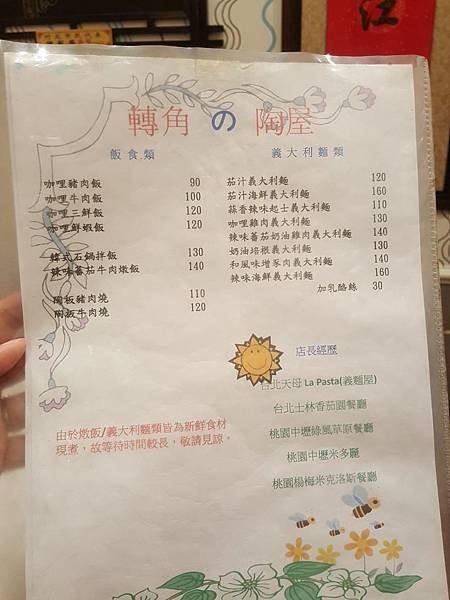 轉角 の 陶屋
飯食類
咖哩豬肉飯 90
咖哩牛肉飯 100
咖哩三鮮飯 120
咖哩鮮蝦飯 120
韓式石鍋拌飯 130
辣味蕃茄牛肉燉飯 140
陶板豬肉燒 110
陶板牛肉燒 120
義大利麵類
茄汁義大利麵 120
茄汁海鮮義大利麵 160
蒜香辣味起士義大利麵 110
咖哩雞肉義大利麵 130
辣味蕃茄奶油雞肉義大利麵 140
奶油培根義大利麵 130
和風味增豚肉義大利麵 140
辣味海鮮義大利麵 160
加乳酪絲 30
店長經歷
台北天母 La Pasta(義麵屋)
台北士林香茄園餐廳
桃園中壢綠風草原餐廳
桃園中壢米多麗
桃園楊梅米克洛斯餐廳
由於燉飯/義大利麵類皆為新鮮食材
現煮，故等待時間較長，敬請見諒。
江